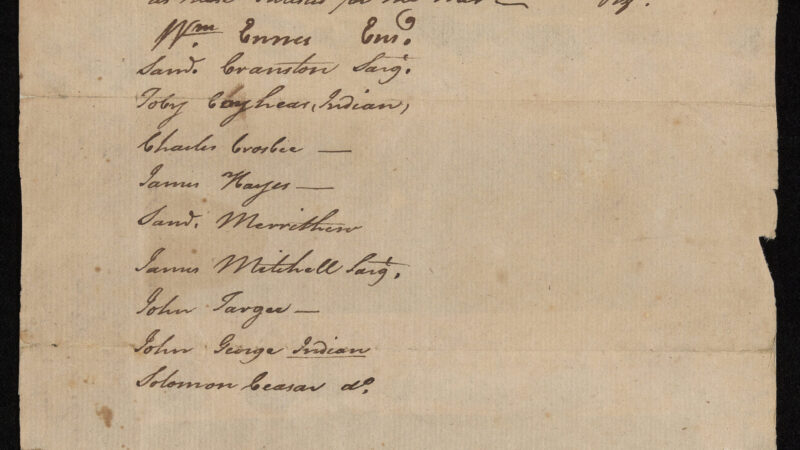 Wm Ennes Ens.
Sand. Cranston Sarg.
Toby Coyheas (Indian)
Charles Crosbee —
James Hayes —
Sand. Merrithew
James Mitchell Sarg.
John Targee —
John George Indian
Solomon Ceasar do.